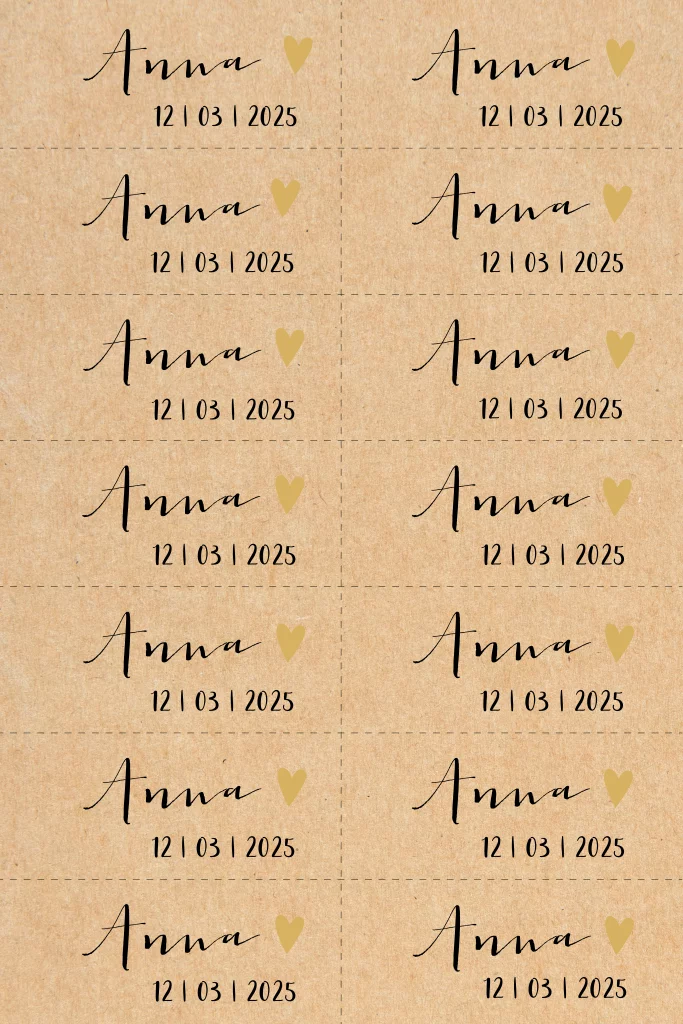 Anna Anna
12 | 03 | 2025 12 | 03 | 2025
Anna Anna
12 | 03 | 2025 12 | 03 | 2025
Anna Anna
12 | 03 | 2025 12 | 03 | 2025
Anna Anna
12 | 03 | 2025 12 | 03 | 2025
Anna Anna
12 | 03 | 2025 12 | 03 | 2025
Anna Anna
12 | 03 | 2025 12 | 03 | 2025
Anna Anna
12 | 03 | 2025 12 | 03 | 2025